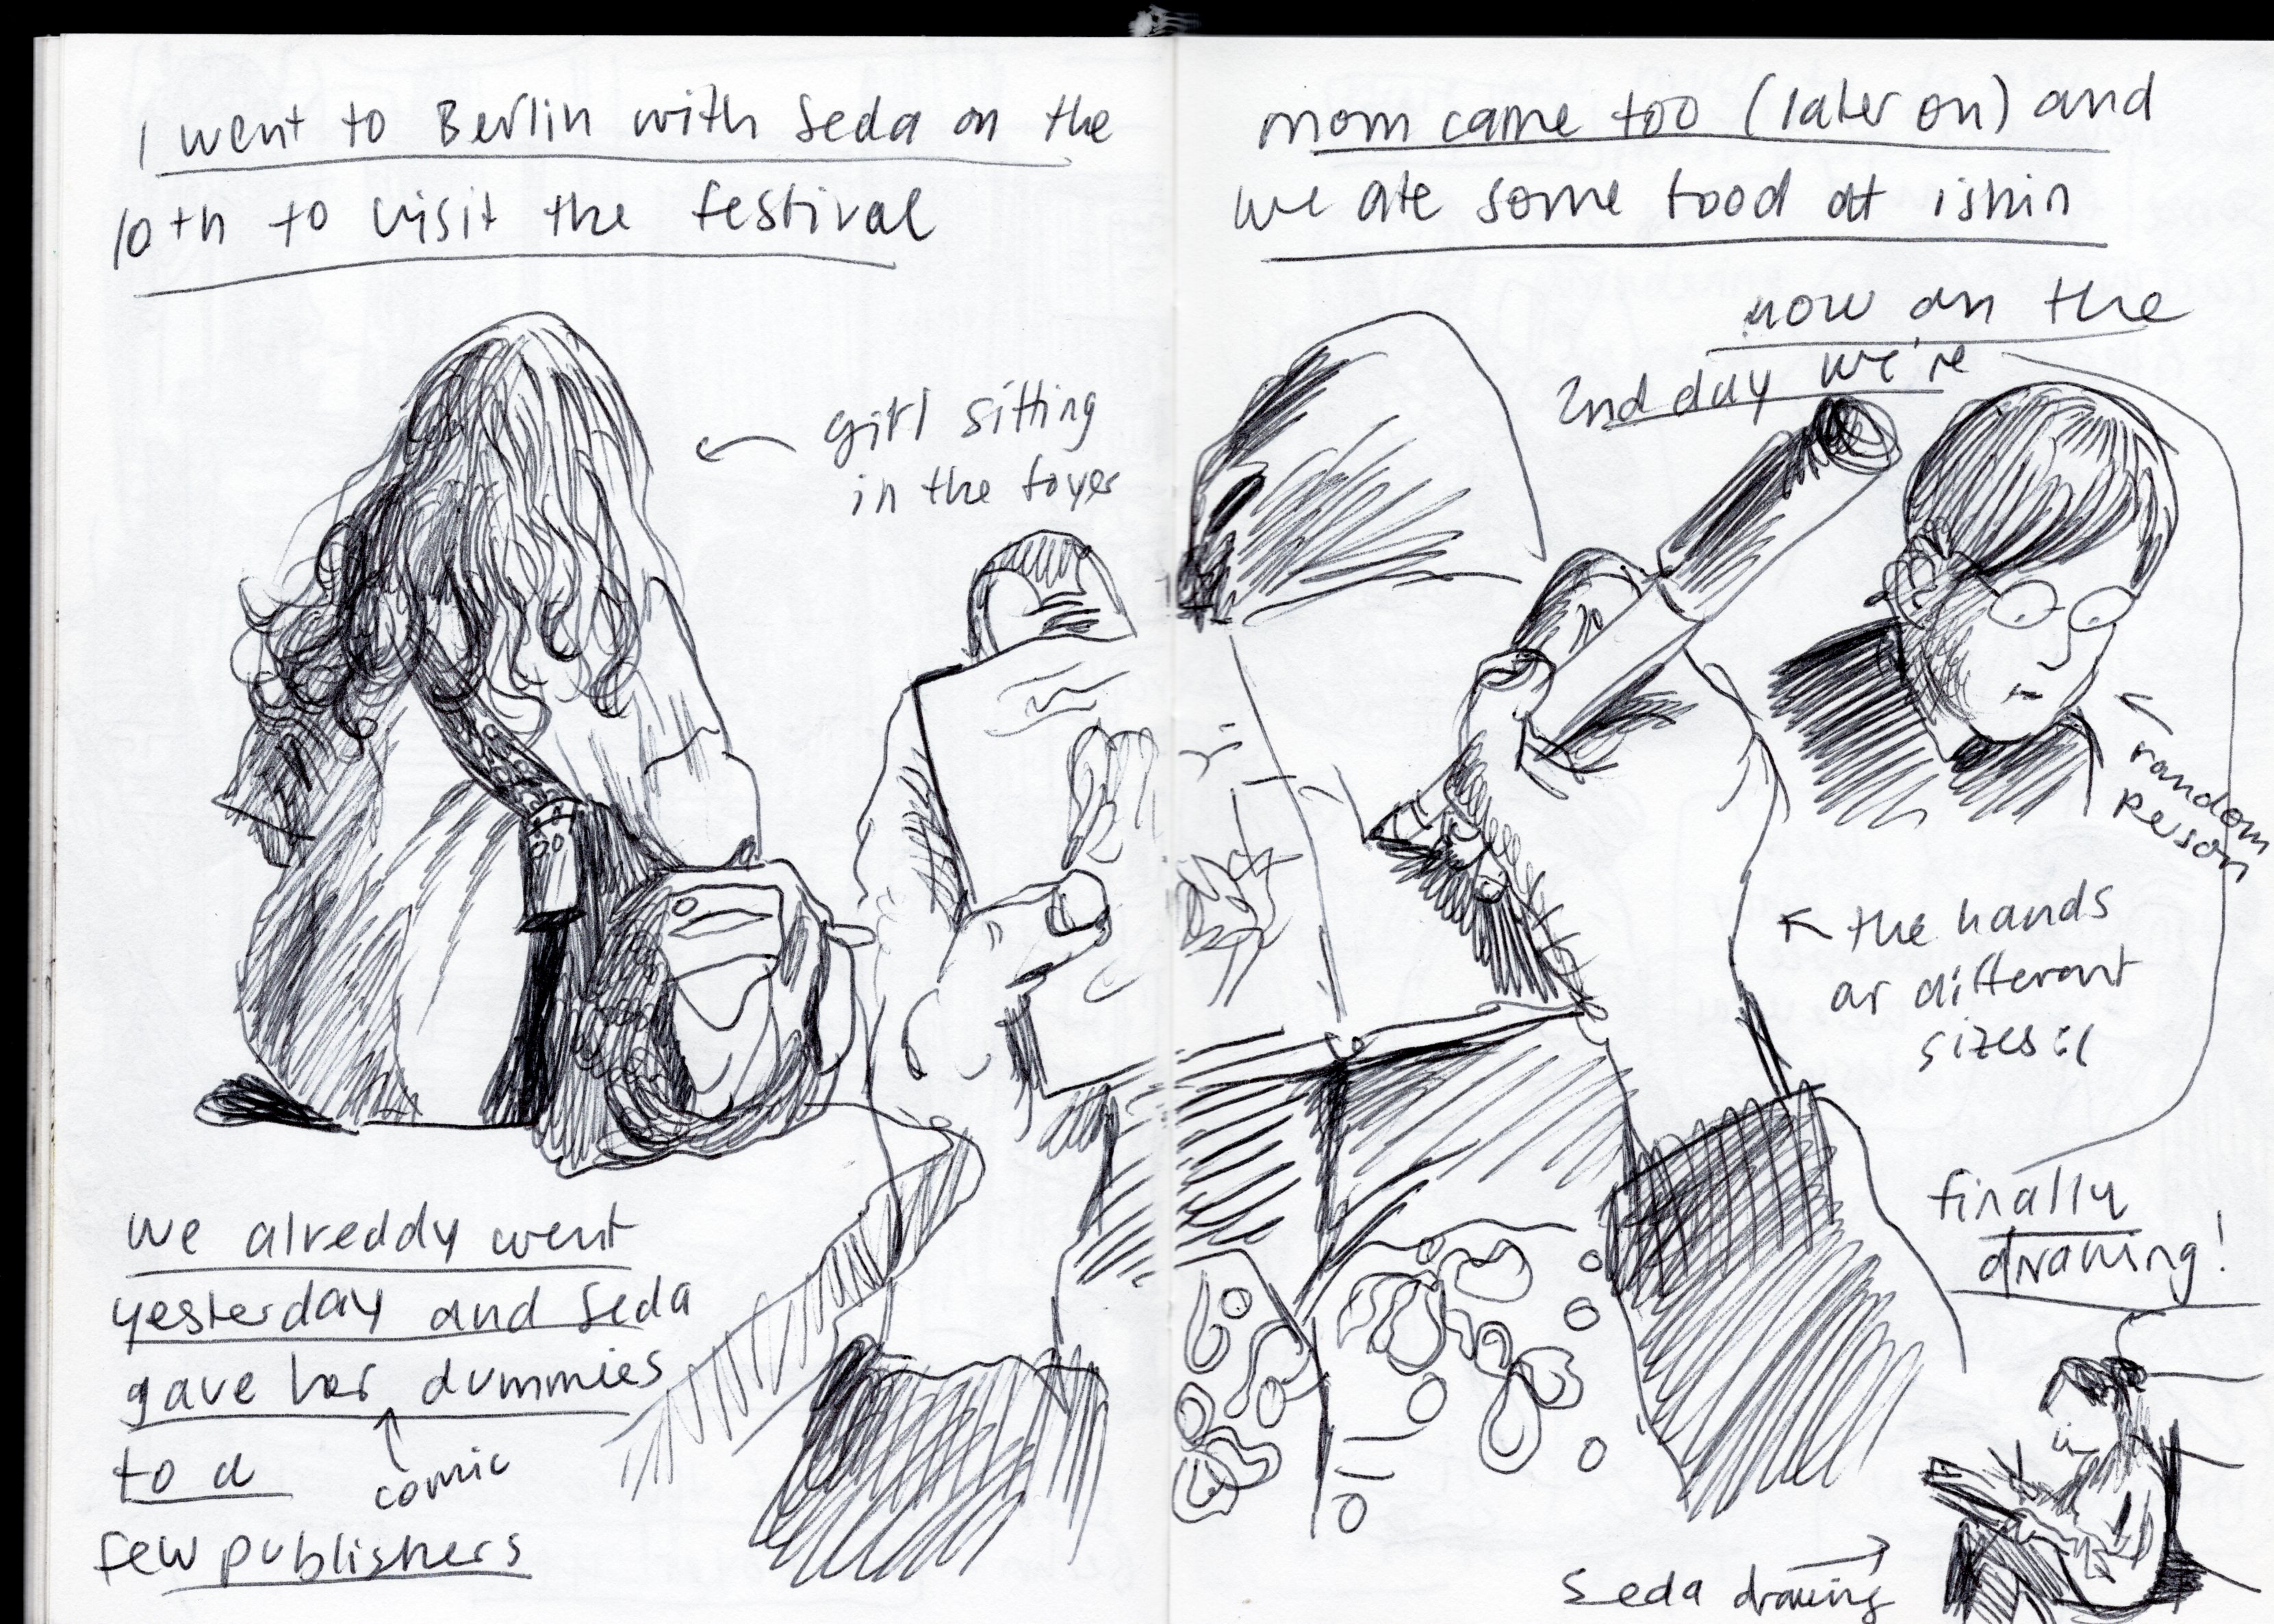 I went to Berlin with Seda on the
10th to visit the festival
girl sitting
in the foyer
we alreddy went
yesterday and Seda
gave her dummies
comic
to a
few publishers
mom came too (later on) and
we ate some food at ishin
now on the
2nd day we're
random
person
the hands
ar different
sizes :(
finally
drawing!
Seda drawing